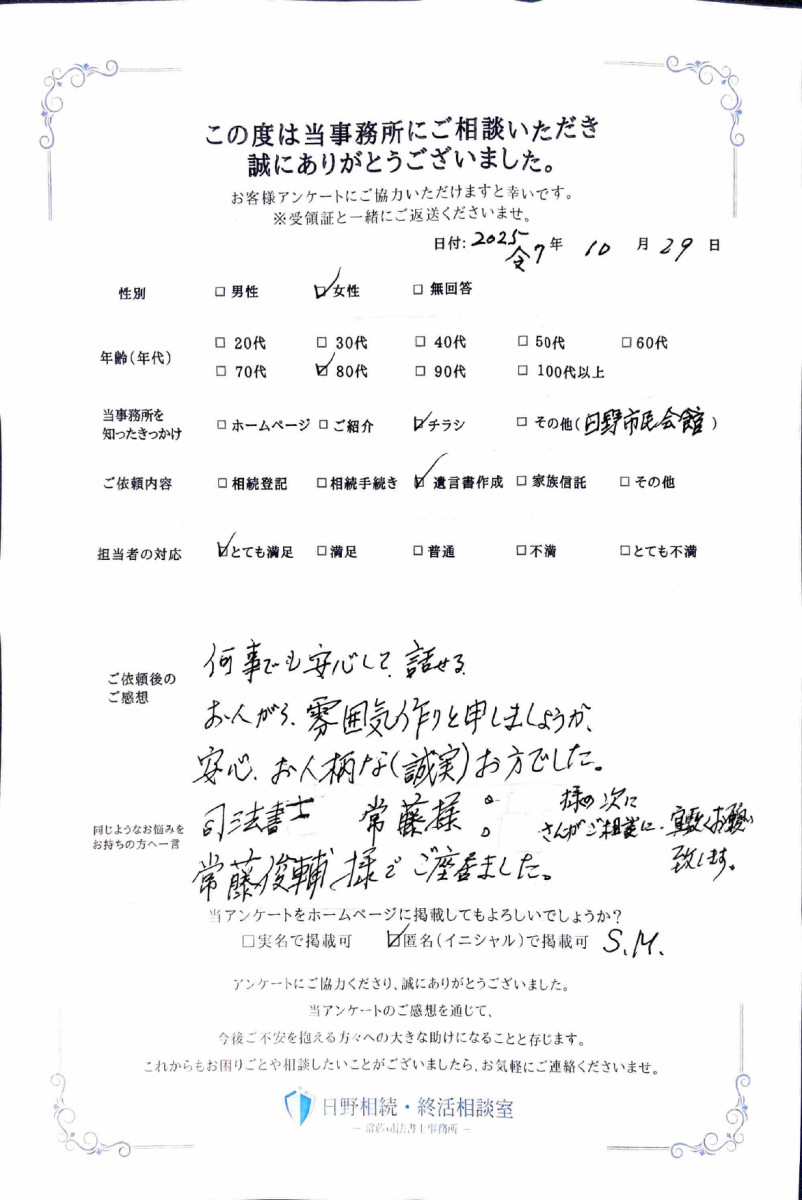 この度は当事務所にご相談いただき
誠にありがとうございました。
お客様アンケートにご協力いただけますと幸いです。
※受領証と一緒にご返送くださいませ。
日付: 2025 令7年 10月 29日
性別 □男性 ☑女性 □無回答
年齢(年代)
□20代 □30代 □40代 □50代 □60代
□70代 ☑80代 □90代 □100代以上
当事務所を
知ったきっかけ
□ホームページ □ご紹介 ☑チラシ □その他(日野市民会館)
ご依頼内容 □相続登記 □相続手続き ☑遺言書作成 □家族信託 □その他
担当者の対応 ☑とても満足 □満足 □普通 □不満 □とても不満
ご依頼後の
ご感想
何事でも安心して、話せる
お人がら、雰囲気作りと申しましょうか、
安心、お人柄な(誠実)お方でした。
同じようなお悩みを
お持ちの方へ一言
司法書士 常藤様。
様の次に
さんがご相談に、
お願い
致します。
常藤俊輔様でご座ました。
当アンケートをホームページに掲載してもよろしいでしょうか?
□実名で掲載可 ☑匿名(イニシャル)で掲載可 S.M.
アンケートにご協力くださり、誠にありがとうございました。
当アンケートのご感想を通じて、
今後ご不安を抱える方々への大きな助けになることと存じます。
これからもお困りごとや相談したいことがございましたら、お気軽にご連絡くださいませ。
日野相続・終活相談室
― 常藤司法書士事務所 ―